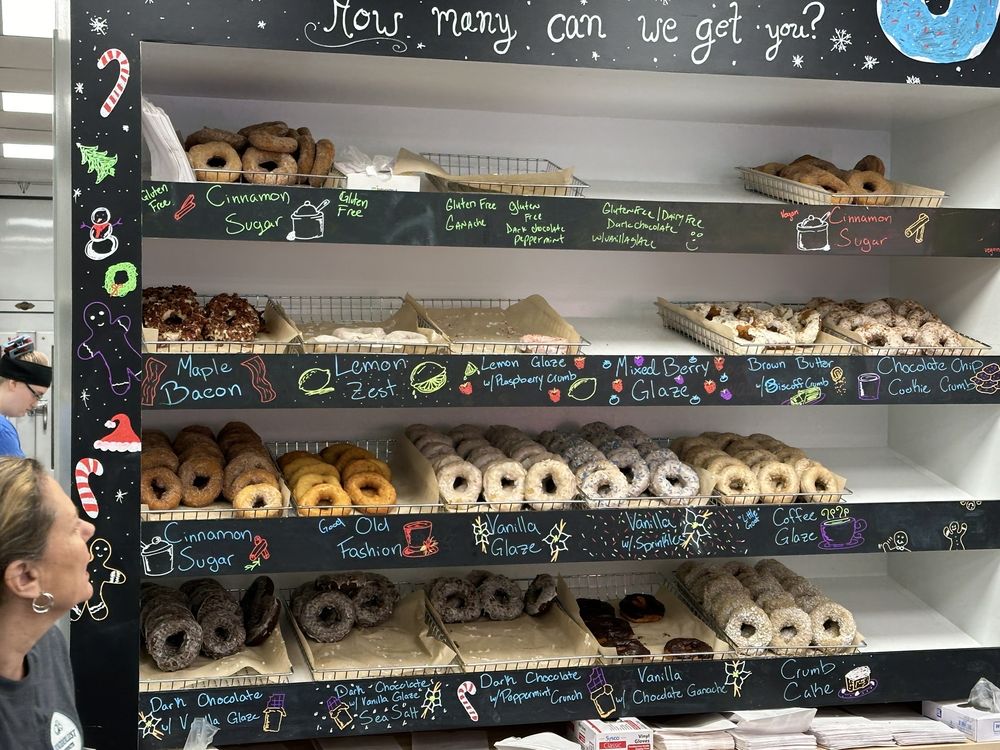 How many can we get you?
Gluten Free
Cinnamon Sugar
Gluten Free
Gluten Free
Ganache
Gluten Free
Dark chocolate
Peppermint
Gluten Free/Dairy Free
Dark chocolate
w/vanilla glaze
Vegan
Cinnamon Sugar
vegan
Maple
Bacon
Lemon
Zest
Lemon Glaze
w/Raspberry Crumb
Mixed Berry
Glaze
Brown Butter
w/Biscoff Crumb
Chocolate Chip
Cookie Crumb
Cinnamon
Sugar
Good Old
Fashion
Vanilla
Glaze
Vanilla
w/Sprinkles
Coffee
Glaze
Dark Chocolate
w/ Vanilla Glaze
Dark Chocolate
w/ Vanilla Glaze
Sea Salt
Dark Chocolate
w/Peppermint Crunch
Vanilla
w/ Chocolate Ganache
Crumb
Cake
Sysco
Classic
Vinyl
Gloves